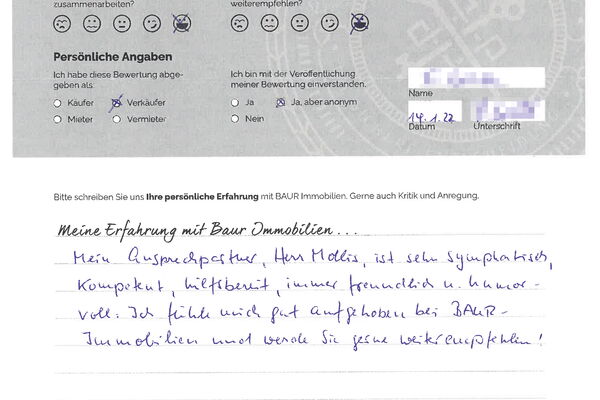 zusammenarbeiten?
weiterempfehlen?
Persönliche Angaben
Ich habe diese Bewertung abge-
geben als:
Käufer
Verkäufer
Mieter
Vermieter
Ich bin mit der Veröffentlichung
meiner Bewertung einverstanden.
Ja
Ja, aber anonym
Nein
Name
14.1.22
Datum
Unterschrift
Bitte schreiben Sie uns Ihre persönliche Erfahrung mit BAUR Immobilien. Gerne auch Kritik und Anregung.
Meine Erfahrung mit Baur Immobilien...
Mein Ansprechpartner, Herr Mollis, ist sehr symphatisch,
kompetent, hilfsbereit, immer freundlich u. humor-
voll. Ich fühle mich gut aufgehoben bei BAUR-
Immobilien und werde Sie gerne weiterempfehlen!